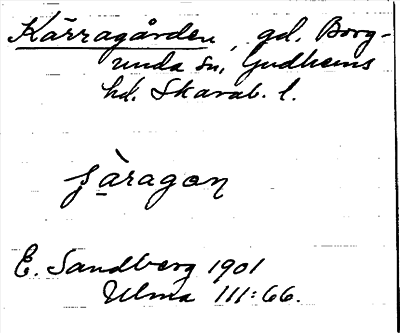 Kärragården, gd. Borg-
unda sn, Gudhems
hd. Skarab. l.
E. Sandberg 1901
Ulma 111:66.